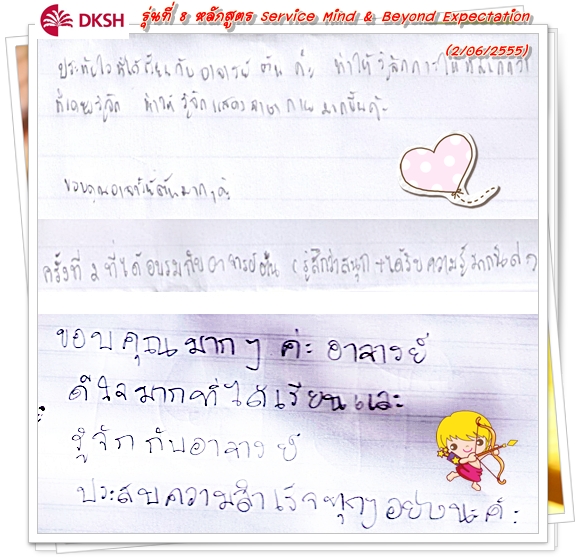 DKSH
รุ่นที่ 8 หลักสูตร Service Mind & Beyond Expectation
(2/06/2555)
ประทับใจที่ได้เรียนกับ อาจารย์ ต้น ค่ะ ทำให้รู้จักการให้ที่มากกว่า
ที่เคยรู้จัก ทำให้ รู้จักแสดงภาษากายมากขึ้นค่ะ
ขอบคุณอาจารย์ต้นมากๆค่ะ
ครั้งที่ 2 ที่ได้อบรมกับอาจารย์ต้น (รู้สึกว่าสนุก + ได้รับความรู้มากขึ้นค่ะ)
ขอบคุณมากๆ ค่ะ อาจารย์
ดีใจมากที่ได้เรียนและ
รู้จักกับอาจารย์
ประสบความสำเร็จทุกๆอย่างนะค่ะ